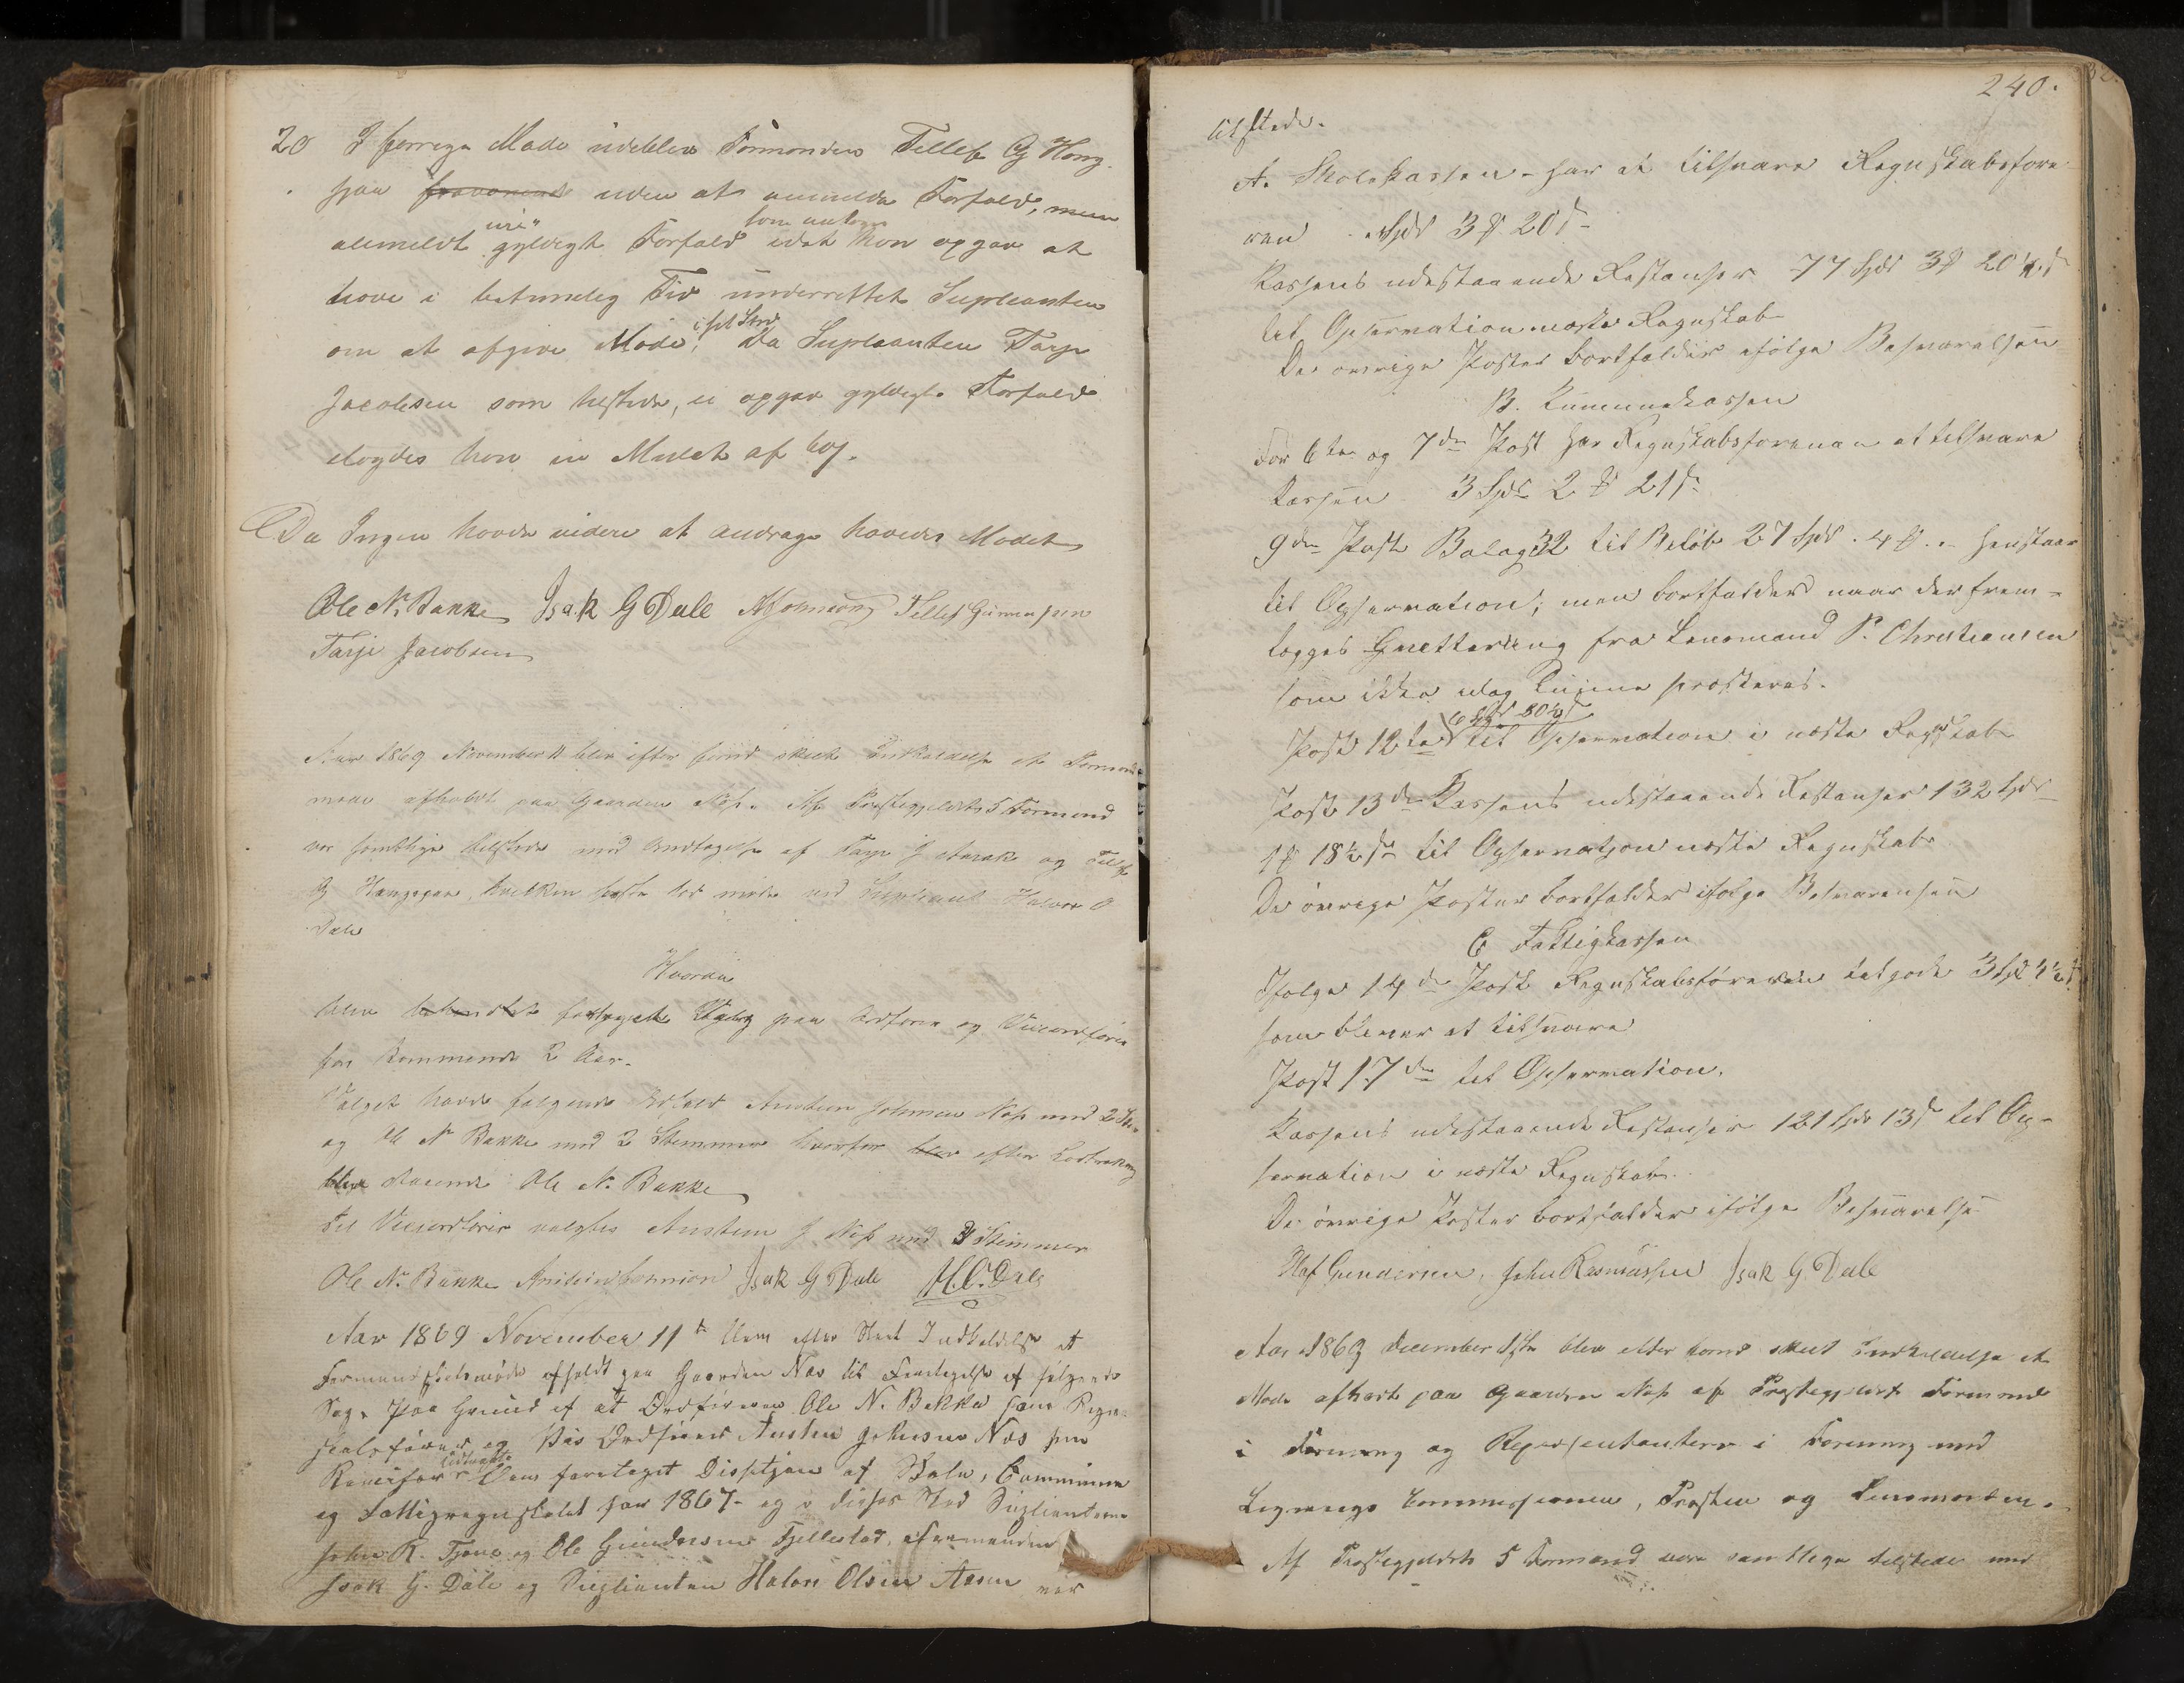 20 I forrige Møde udeblev Formanden Tellef G Houg
saa fraværende uden at anmelde Forfald, men
som antoges
alimeldt gyldigt Forfald idet han opgav at
have i betimelig Tid underrettet Supleanten
i sit Sted
om at afgive Møde, Da Supleanten Tarje
Jacobsen som tilstede, ei opgav gyldigt Forfald
ilagdes han en Mulct af 60 s.
Da Ingen havde videre at andrage hævedes Mødet
Ole N. Bakke Isak G Dale AJohnsen Tellef Gunnersen
Tarje Jacobsen
Aar 1869 November 11 blev efter forud skeet Indkaldelse et Formands
møde afholdt paa Gaarden Næs. Af Præstegjeldets 5 Formænd
var samtlige tilstede med Undtagelse af Tarje J Aasak og Tellef
G Hougegaa, hvilken sidste lod møde ved Supleant Halvor O
Dale
Hvorda
blev foretaget Valg paa Ordfører og Viceordfører
for kommende 2 Aar.
Valget havde følgende Udfald Austen Johnsen Næs med 2 St
og Ole N Bakke med 2 Stemmer hvorfor blev efter Lodtrækning
blev staaende Ole N. Bakke
Til Viceordfører valgtes Austen J Næs med 3 Stemmer
Ole N. Bakke Isak G Dale H.O.Dale
Aar 1869 November 11te blev efter skeet Indkaldelse et
Formandskabsmøde afholdt paa Gaarden Næs til Foretagelse af følgende
Sag. Paa Grund af at Ordføreren Ole N. Bakke som Regn-
skabsfører og Vice Ordfører Austen Johnsen Næs som
Revisor blev foretaget Decision af Skole, Commune
og Fattigregnskabet for 1867 og i disses Sted Suplianterne
John R. Tjøme og Ole Gundersen Fjellestad, Formanden
Isak G. Dale og Suplianten Halvor Olsen Aasen var
240.
tilstede.
A. Skolekassen - har at tilsvare Regnskabsføre
ren Spd 3 # 20 s
Kassens udestaaende Restanser 77 Spd 3 # 20½ s
til Observation næste Regnskab
De øvrige Poster bortfalder ifølge Besvarelsen
B. Kummunekassen
For 6te og 7de Post har Regnskabsføreren at tilsvare
Kassen 3 Spd 2 # 21 s
9de Post Balag 32 til Beløb 27 Spd. 4 #. henstaar
til Observation; men bortfalder naar der frem-
lægges Qvettering fra Lensmand P. Christiansen
som ikke idag kunne præsteres.
Post 12te til Observation i næste Regnskab
Post 13de Kassens udestaaende Restanser 132 Spd
1 # 18½ s til Observatjon næste Regnskab
De øvrige Poster bortfalder ifølge Besvarensen
C Fattigkassen
Ifølge 14de Post Regnskabsføreren tilgode 3 Spd 4½ s
som bliver at tilsvare
Post 17de til Observation.
Kassens udestaaende Restanser 121 Spd 13 s til Ob-
servation i næste Regnskab.
De øvrige Poster bortfalder ifølge Besvarelse
Olaf Gundersen, John Rasmussen Isak G. Dale
Aar 1869 December 1ste blev efter forud skeet Indkaldelse et
Møde afholdt paa Gaarden Næs af Præstegjeldets Formænd
i Forening og Representanterne i Forening med
Lignings Commissionen, Præsten og Lensmanden.
Af Præstegjeldets 5 Formænd vare samtlige tilstede med